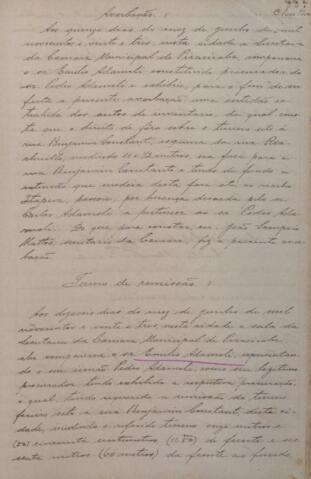 Averbação:
Aos quinze dias do mez de junho de mil
novecentos e vinte e tres, nesta cidade e secretaria
da Camara Municipal de Piracicaba, compareceu
o sr. Emilio Adamoli constituido procurador do
sr. Pedro Adamoli e exhibiu, para o fim de ser
feita a presente averbação, uma certidão ex-
trahida dos autos de inventario, da qual cons-
ta que o direito de fôro sobre o terreno sito á
rua Benjamin Constant, esquina da rua
medindo 12 metros para
rua Benjamin Constant e tendo de fundo a
extensão que medeia desta face até o riacho
Itapeva, passou, por herança deixada pelo sr.
Carlos Adamoli a pertencer ao sr. Pedro Ada-
moli. Do que para constar eu, João Sampaio
Mattos, secretario da Camara, fiz a presente aver-
bação.
Termo de remissão:
Aos dias do mez de junho de mil
novecentos e vinte e tres, nesta cidade e sala da
secretaria da Camara Municipal de Piracicaba
ahi compareceu o sr. Emilio Adamoli, representan-
do o seu irmão Pedro Adamoli, como seu legitimo
procurador, tendo exhibido a respectiva procuração,
o qual, tendo requerido a remissão do terreno
foreiro sito á rua Benjamin Constant, desta ci-
dade, medindo o referido terreno onze metros e
(50) cincoenta centimetros (11.50) de frente e ses-
senta metros (60 metros) da frente ao fundo,